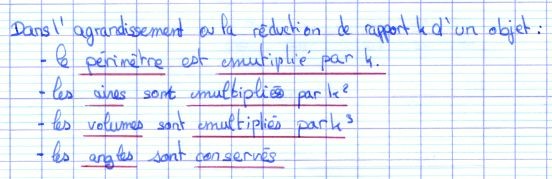 Dans l'agrandissement ou la réduction de rapport k d'un objet :
- le périmètre est multiplié par k.
- les aires sont multipliés par k²
- les volumes sont multipliés par k³
- les angles sont conservés